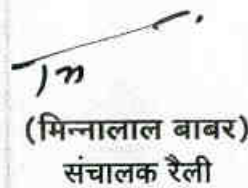 (मिन्नालाल बाबर)
संचालक रैली